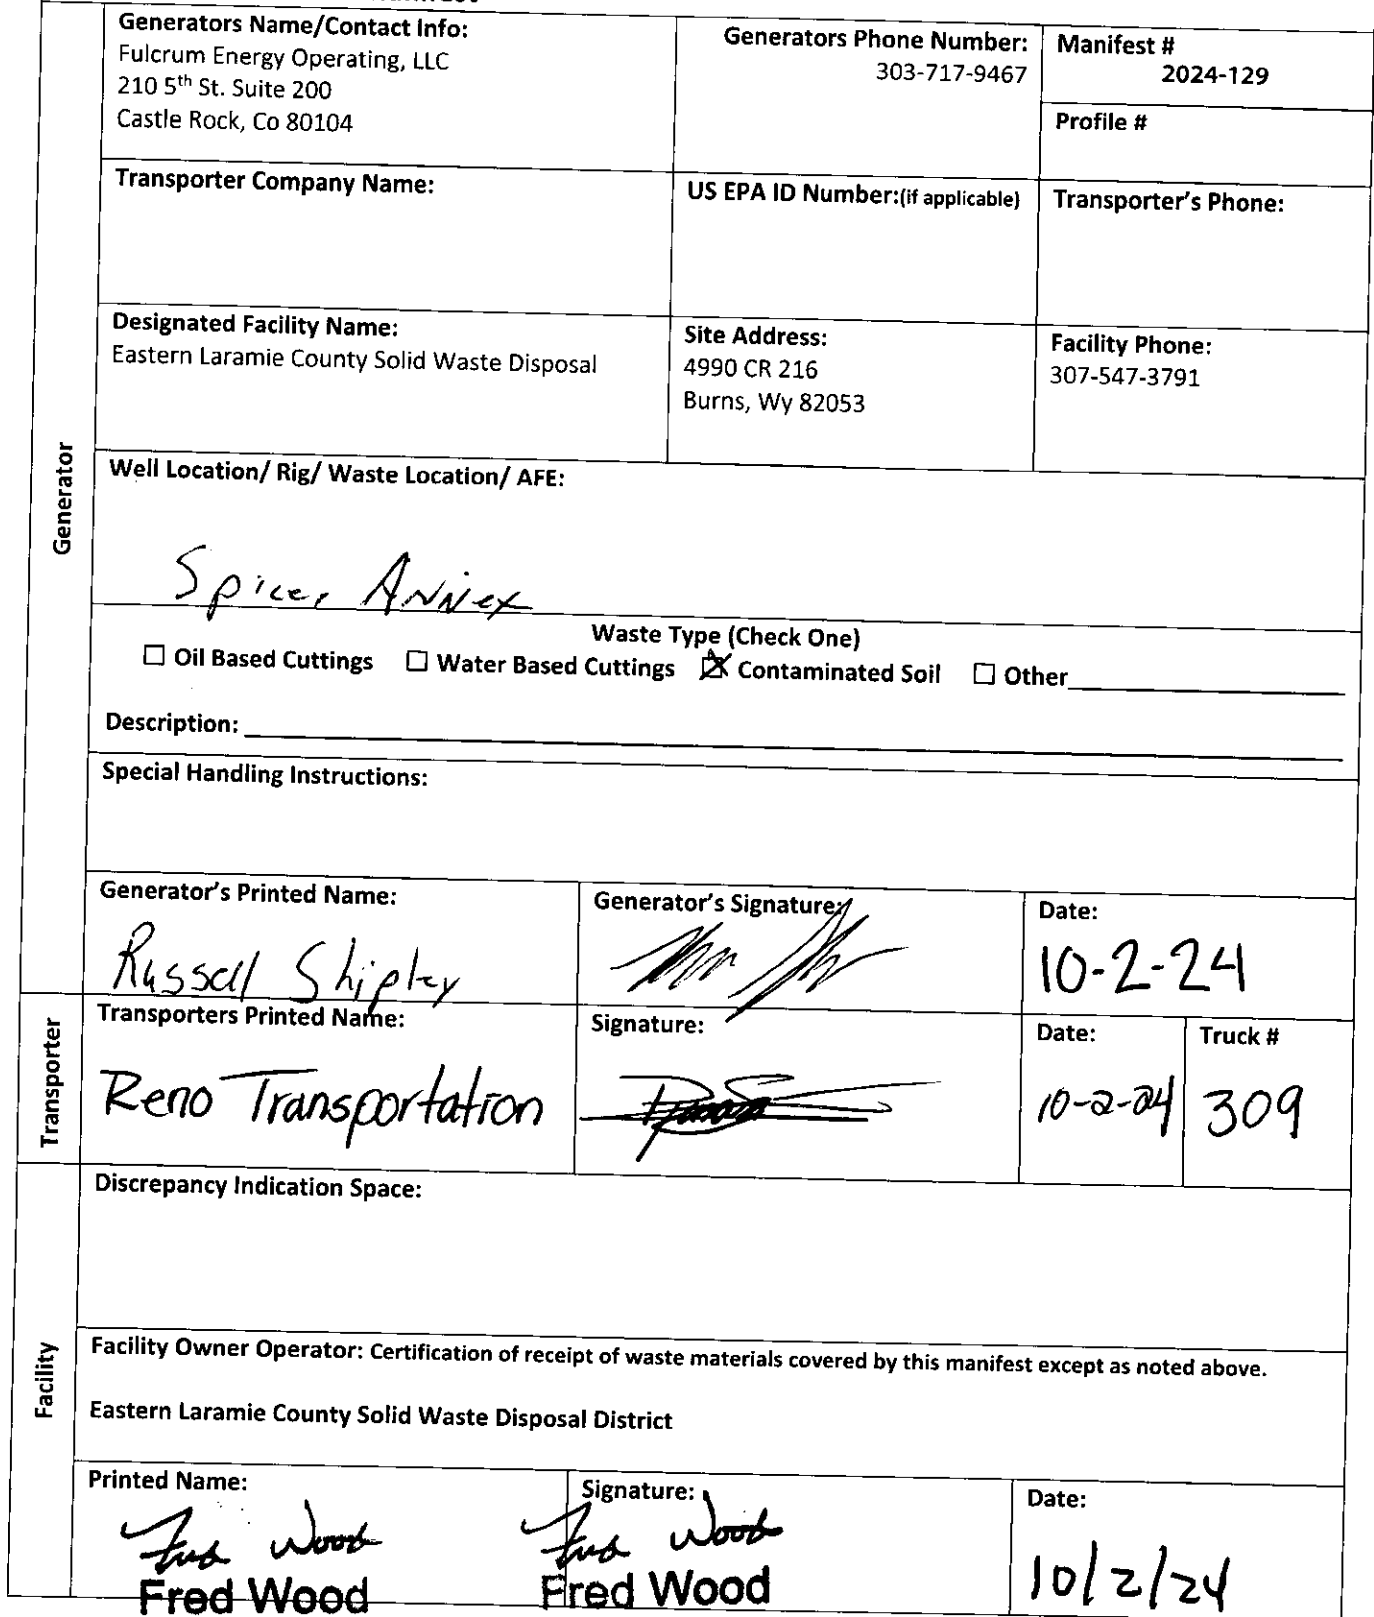 Generators Name/Contact Info:
Fulcrum Energy Operating, LLC
210 5th St. Suite 200
Castle Rock, Co 80104
Generators Phone Number:
303-717-9467
Manifest #
2024-129
Profile #
Transporter Company Name:
US EPA ID Number:(if applicable)
Transporter's Phone:
Designated Facility Name:
Eastern Laramie County Solid Waste Disposal
Site Address:
4990 CR 216
Burns, Wy 82053
Facility Phone:
307-547-3791
Generator
Well Location/ Rig/ Waste Location/ AFE:
Spicer Annex
Waste Type (Check One)
☐ Oil Based Cuttings ☐ Water Based Cuttings ☒ Contaminated Soil ☐ Other
Description:
Special Handling Instructions:
Generator's Printed Name:
Russell Shipley
Generator's Signature:
Date:
10-2-24
Transporter
Transporters Printed Name:
Reno Transportation
Signature:
Date:
10-2-24
Truck #
309
Facility
Discrepancy Indication Space:
Facility Owner Operator: Certification of receipt of waste materials covered by this manifest except as noted above.
Eastern Laramie County Solid Waste Disposal District
Printed Name:
Fred Wood
Fred Wood
Signature:
Fred Wood
Fred Wood
Date:
10/2/24